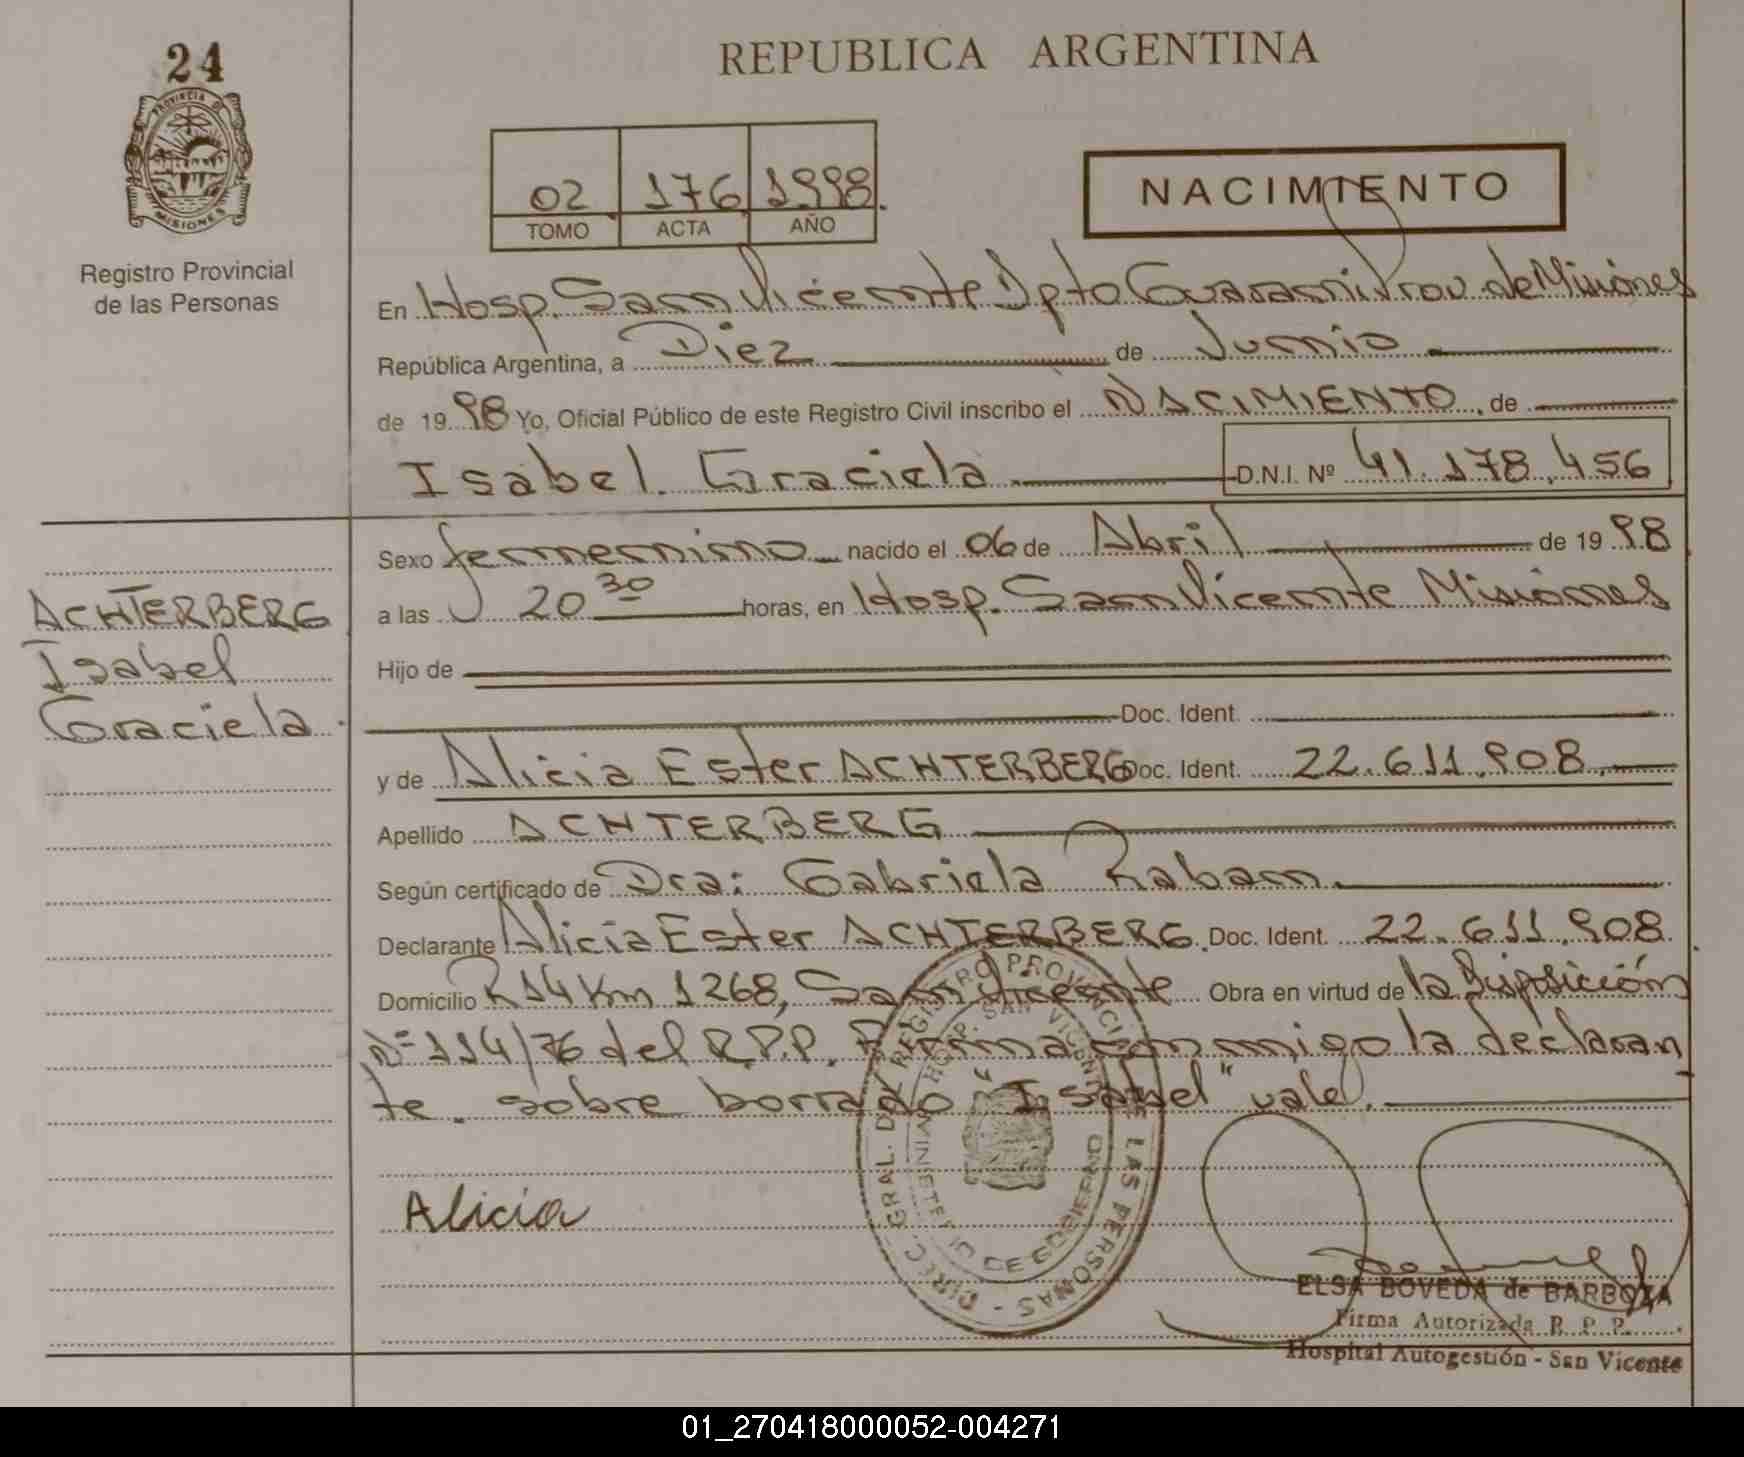 24
PROVINCIA DE
MISIONES
Registro Provincial
de las Personas
REPUBLICA ARGENTINA
02 176 1998
TOMO ACTA AÑO
NACIMIENTO
En Hosp. San Vicente Dpto Guarani Prov. de Misiones
República Argentina, a Diez de Junio
de 19 98 Yo, Oficial Público de este Registro Civil inscribo el NACIMIENTO, de
Isabel Graciela D.N.I. Nº 41.178.456
Sexo femenino nacido el 06 de Abril de 19 98
a las 20 30 horas, en Hosp. San Vicente Misiones
Hijo de
Doc. Ident.
y de Alicia Ester ACHTERBERG Doc. Ident. 22.611.908
Apellido ACHTERBERG
Según certificado de Dra: Gabriela Raban
Declarante Alicia Ester ACHTERBERG. Doc. Ident. 22.611.908
Domicilio R 14 Km 1268, San Vicente Obra en virtud de la Disposición
Nº 114/76 del R.P.P. Firma conmigo la declaran
te. sobre borrado "Isabel" vale.
ACHTERBERG
Isabel
Graciela
Alicia
DIREC. GRAL. DEL REGISTRO PROVINCIAL DE LAS PERSONAS
HOSP. SAN VICENTE
MINISTERIO DE GOBIERNO
ELSA BOVEDA de BARBOZA
Firma Autorizada R. P. P.
Hospital Autogestión - San Vicente
01_270418000052-004271